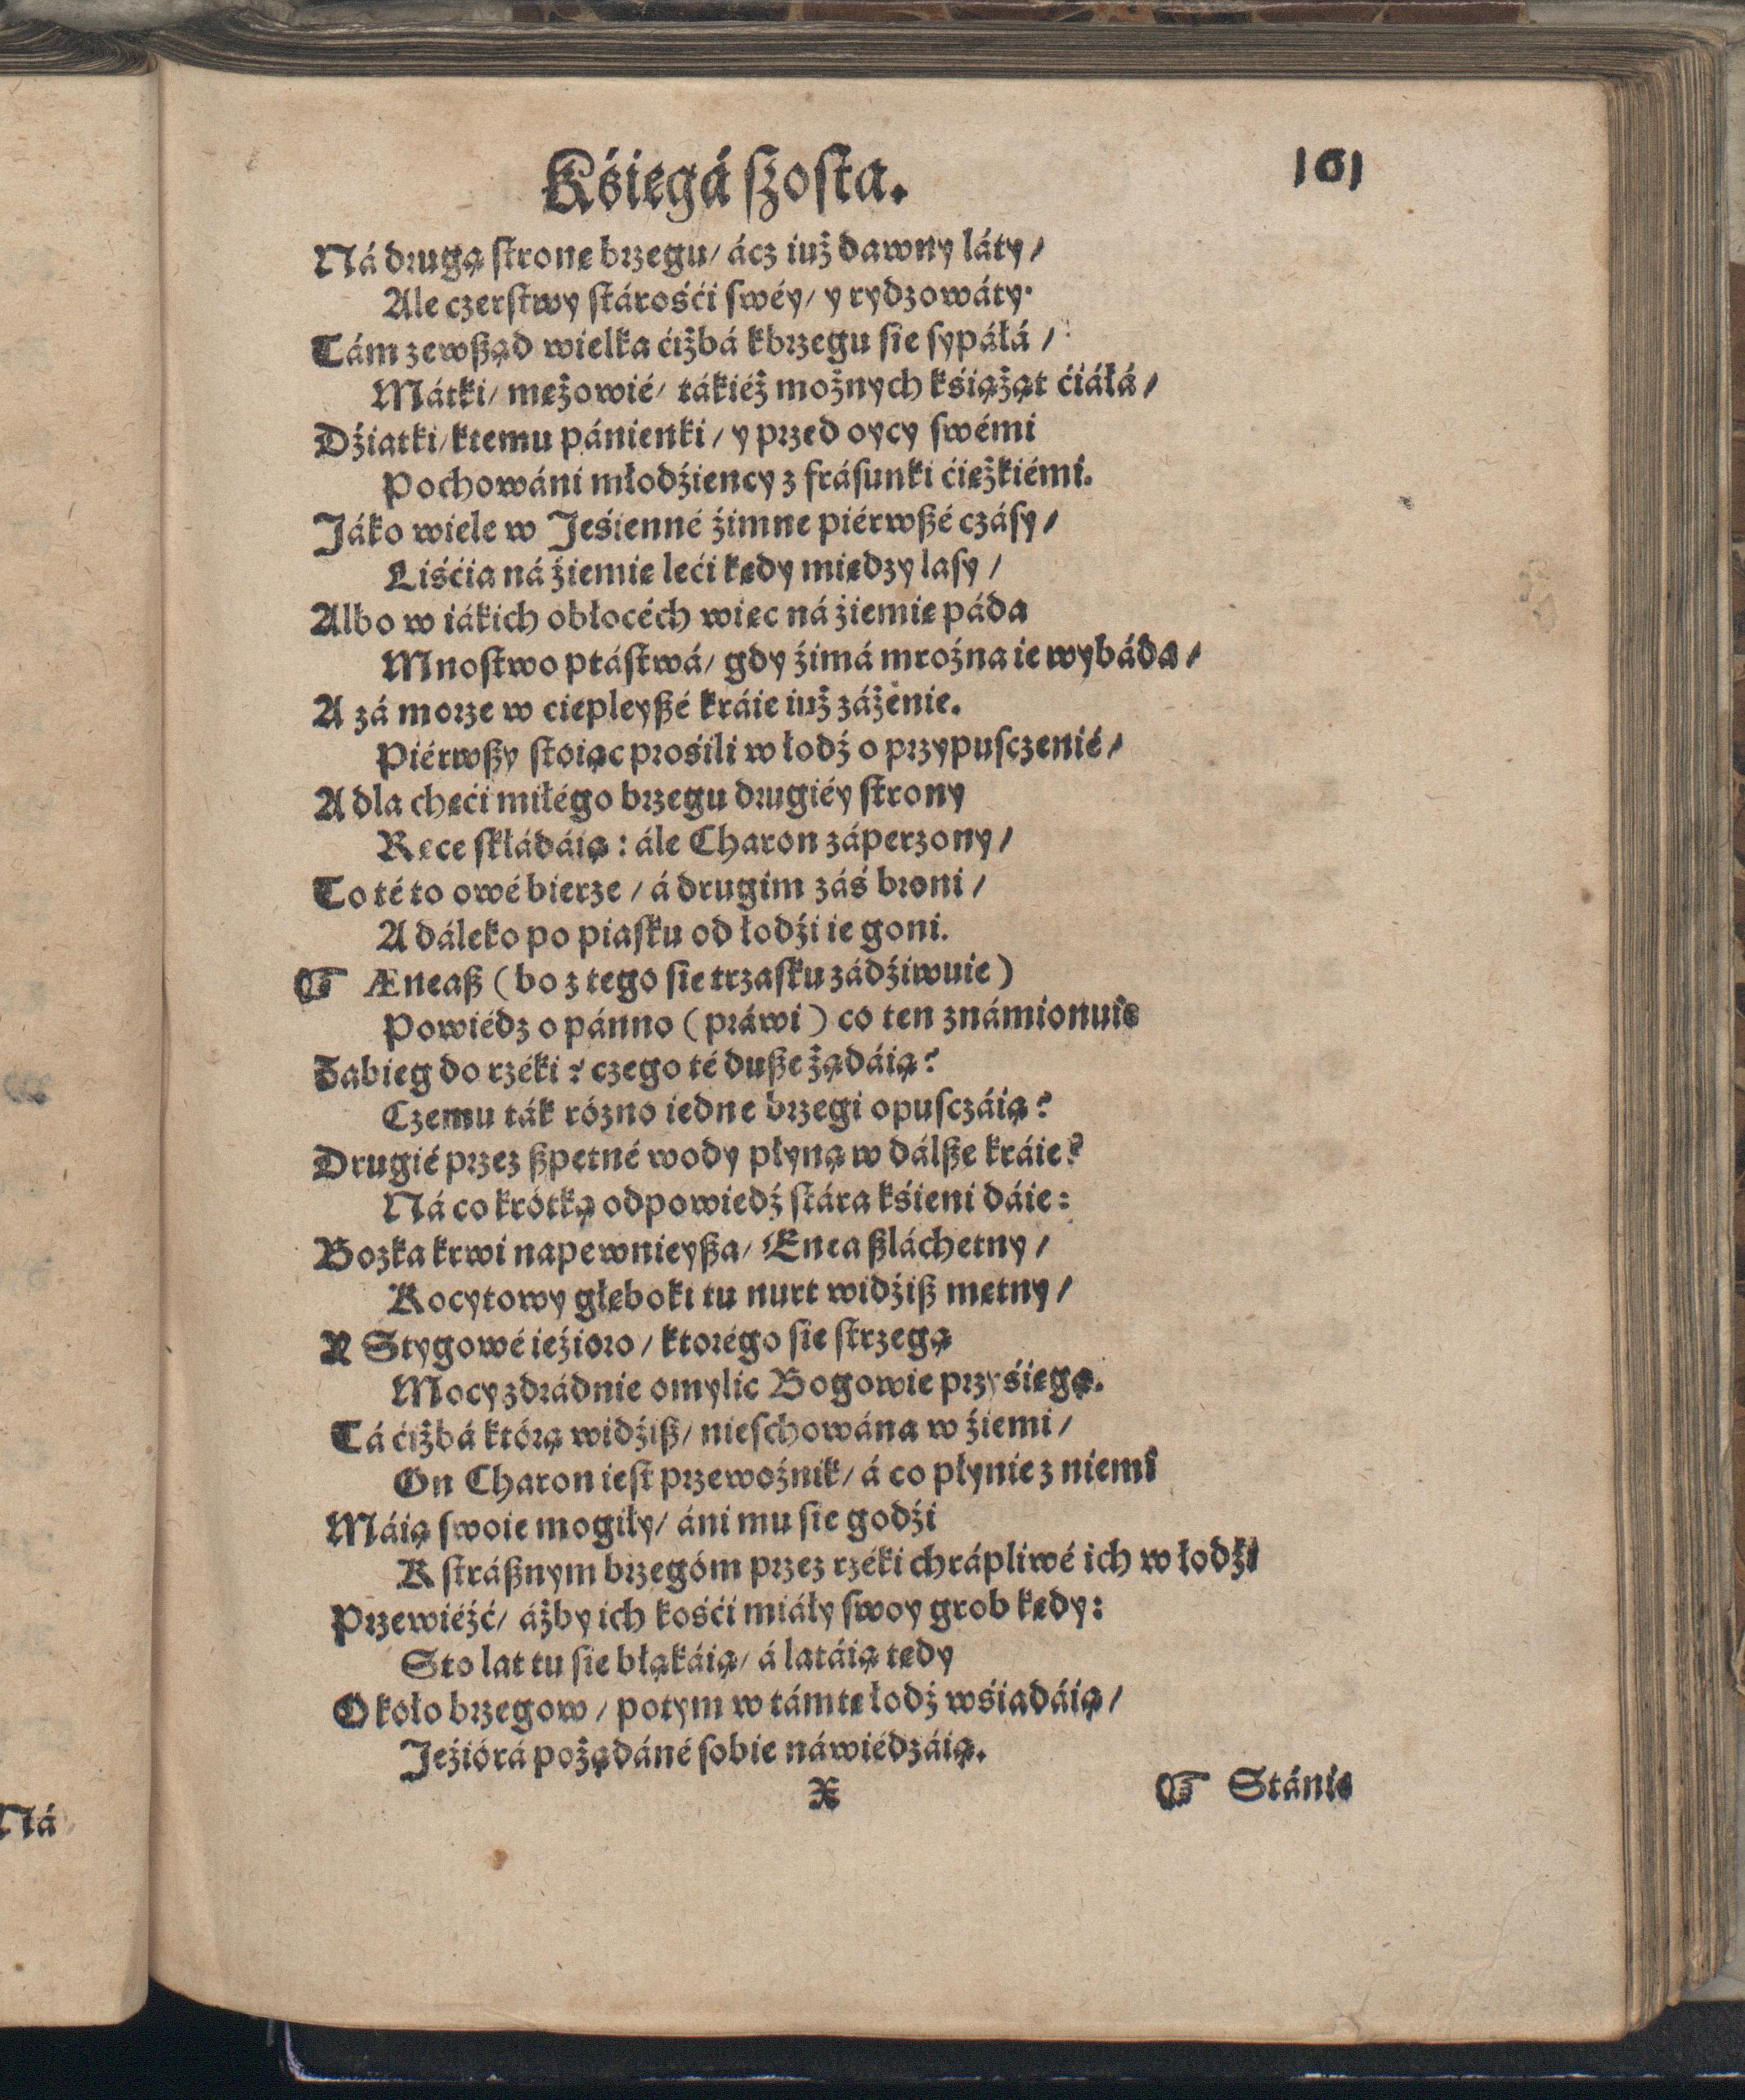 Kśięgá ſzoſta.
161
Ná drugą ſtronę brzegu/ ácz iuż dawny láty/
Ale czerſtwy ſtárośći ſwéy/ y rydzowáty.
Tám zewßąd wielka ćiżbá kbrzegu ſie ſypáłá/
Mátki/ mężowié/ tákiéż możnych kśiążąt ćiáłá/
Dźiatki/ ktemu pánienki/ y przed oycy ſwémi
Pochowáni młodźiency z fráſunki ćiężkiémi.
Jáko wiele w Jeśienné źimne piérwßé czáſy/
Liśćia ná źiemię leći kędy między laſy/
Albo w iákich obłocéch więc ná źiemię páda
Mnoſtwo ptáſtwá/ gdy źimá mroźna ie wybáda/
A zá morze w ciepleyßé kráie iuż záżenie.
Piérwßy ſtoiąc prośili w łodź o przypuſczenié/
A dla chęći miłégo brzegu drugiéy ſtrony
Ręce ſkłádáią: ále Charon záperzony/
To té to owé bierze/ á drugim záś broni/
A dáleko po piaſku od łodźi ie goni.
☞ Æneaß (bo z tego ſie trzaſku zádźiwuie)
Powiédz o pánno (práwi) co ten známionuie
Zabieg do rzéki? czego té duße żądáią?
Czemu ták rózno iedne brzegi opuſczáią?
Drugié przez ßpetné wody płyną w dálße kráie?
Ná co krótką odpowiedź ſtára kśieni dáie:
Bozka krwi napewnieyßa/ Enea ßláchetny/
Kocytowy głęboki tu nurt widźiß mętny/
Y Stygowé ieźioro/ ktorégo ſie ſtrzegą
Mocy zdrádnie omylic Bogowie przyśięgą.
Tá ćiżbá którą widźiß/ nieſchowána w źiemi/
On Charon ieſt przewoźnik/ á co płynie z niemi
Máią ſwoie mogiły/ áni mu ſie godźi
K ſtráßnym brzegóm przez rzéki chrápliwé ich w łodźi
Przewiéźć/ áżby ich kośći miáły ſwoy grob kędy:
Sto lat tu ſie błąkáią/ á latáią tędy
Około brzegow/ potym w támtę łodź wśiadáią/
Jeźiórá pożądáné ſobie náwiédzáią.
X
☞ Stánie
Ná